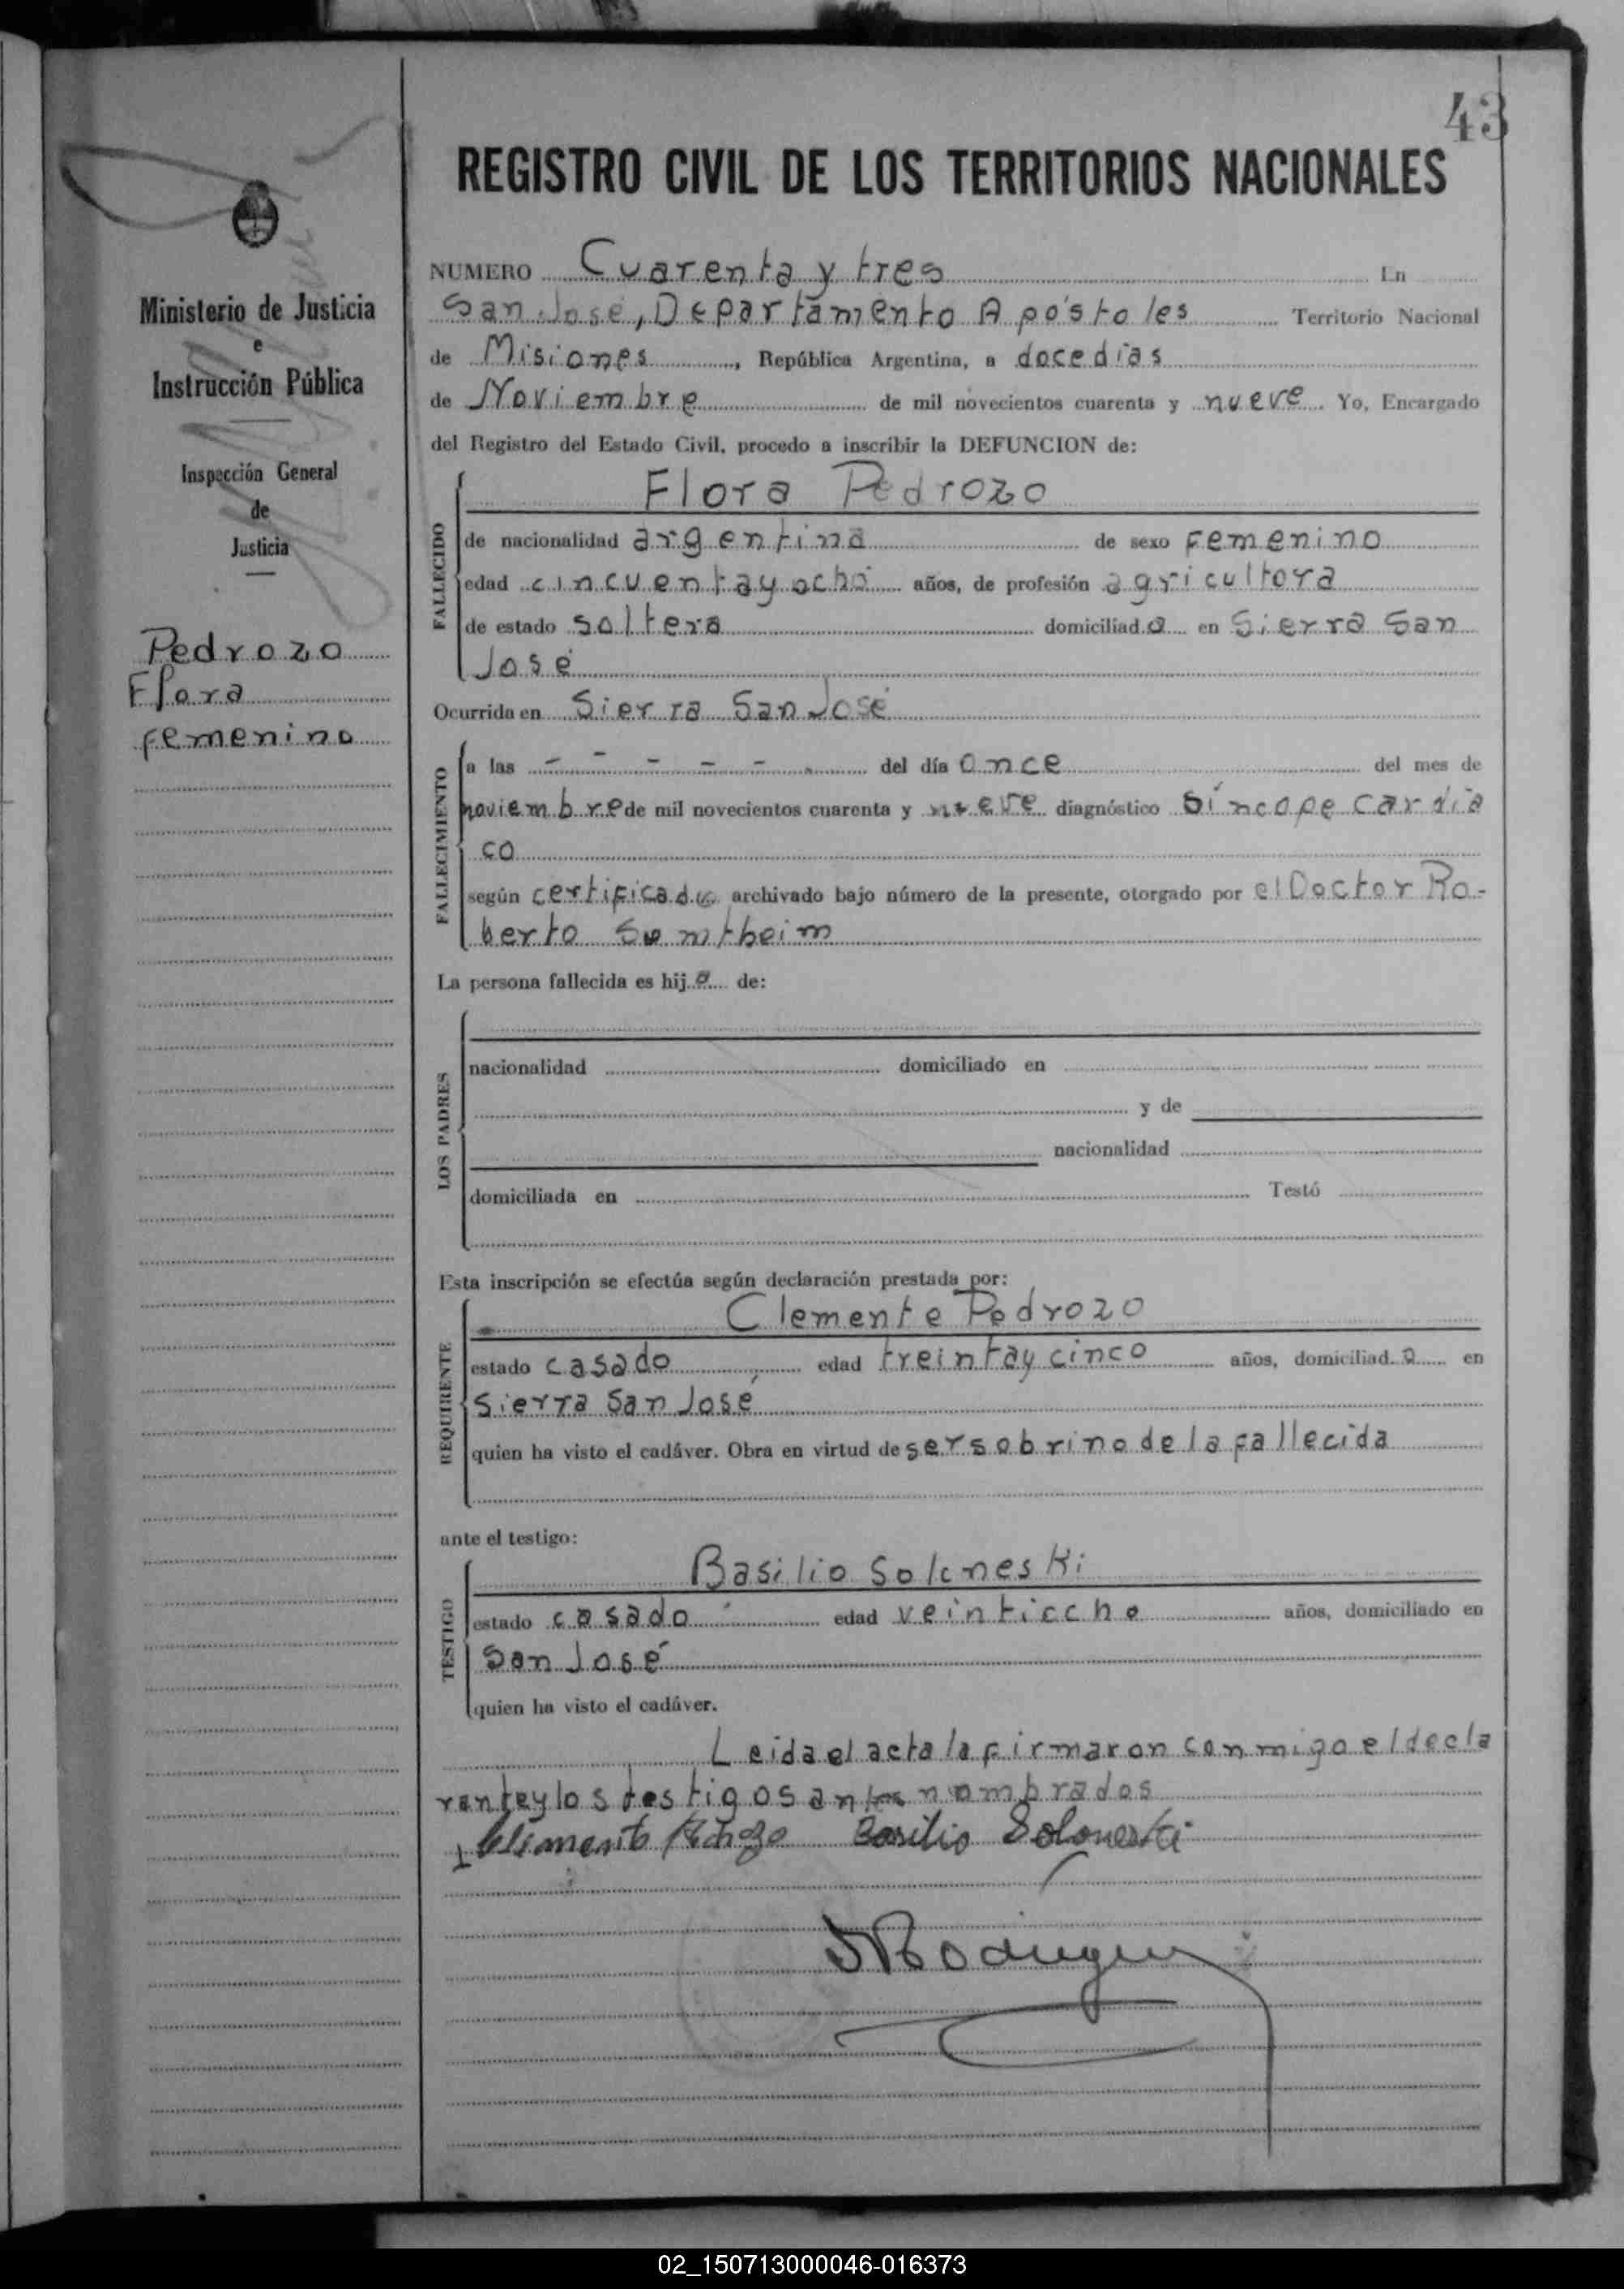 43
REGISTRO CIVIL DE LOS TERRITORIOS NACIONALES
Ministerio de Justicia
e
Instrucción Pública
Inspección General
de
Justicia
Pedrozo
Flora
femenino
NUMERO Cuarenta y tres En
San José, Departamento Apóstoles Territorio Nacional
de Misiones, República Argentina, a doce días
de Noviembre de mil novecientos cuarenta y nueve. Yo, Encargado
del Registro del Estado Civil, procedo a inscribir la DEFUNCION de:
FALLECIDO
Flora Pedrozo
de nacionalidad argentina de sexo femenino
edad cincuenta y ocho años, de profesión agricultora
de estado soltera domiciliada en Sierra San
José
Ocurrida en Sierra San José
FALLECIMIENTO
a las - - - - - del día once del mes de
noviembre de mil novecientos cuarenta y nueve diagnóstico Síncope cardia
co
según certificado archivado bajo número de la presente, otorgado por el Doctor Ro-
berto
La persona fallecida es hija de:
LOS PADRES
nacionalidad domiciliado en
y de
nacionalidad
domiciliada en Testó
Esta inscripción se efectúa según declaración prestada por:
REQUIRENTE
Clemente Pedrozo
estado casado, edad treinta y cinco años, domiciliado en
Sierra San José
quien ha visto el cadáver. Obra en virtud de ser sobrino de la fallecida
ante el testigo:
TESTIGO
Basilio Soloneski
estado casado edad veintiocho años, domiciliado en
San José
quien ha visto el cadáver.
Leida el acta la firmaron conmigo el decla
rante y los testigos antes nombrados
Clemente Pedrozo Basilio Soloneski
Rodriguez
02_150713000046-016373